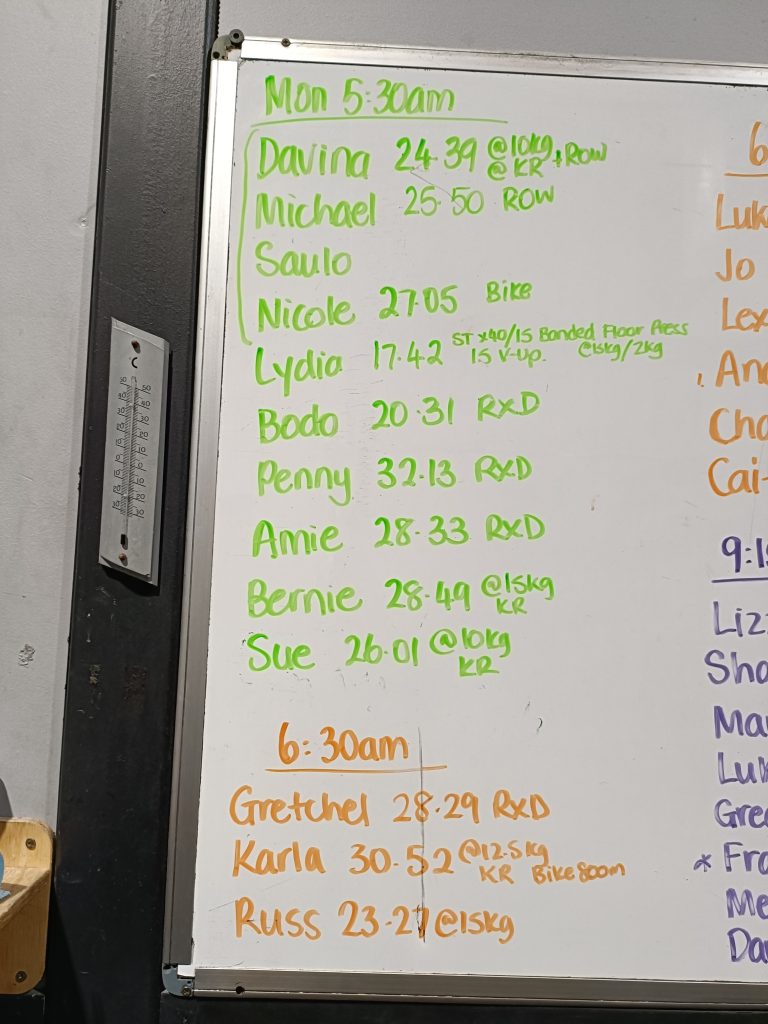 Mon 5:30am
Davina 24.39 @10kg + ROW
@ KR
Michael 25.50 ROW
Saulo
Nicole 27.05 Bike
Lydia 17.42 ST x40/15 Banded Floor Press
15 V-Up. @15kg/2kg
Bodo 20.31 RXD
Penny 32.13 RXD
Amie 28.33 RXD
Bernie 28.49 @15kg
KR
Sue 26.01 @10kg
KR
6:30am
Gretchel 28.29 RXD
Karla 30.52 @12.5kg
KR Bike 800m
Russ 23.27 @15kg
6
Luk
Jo
Lex
And
Cha
Cai
9:15
Liz
Sha
Ma
Luk
Gre
* Fra
Me
Da